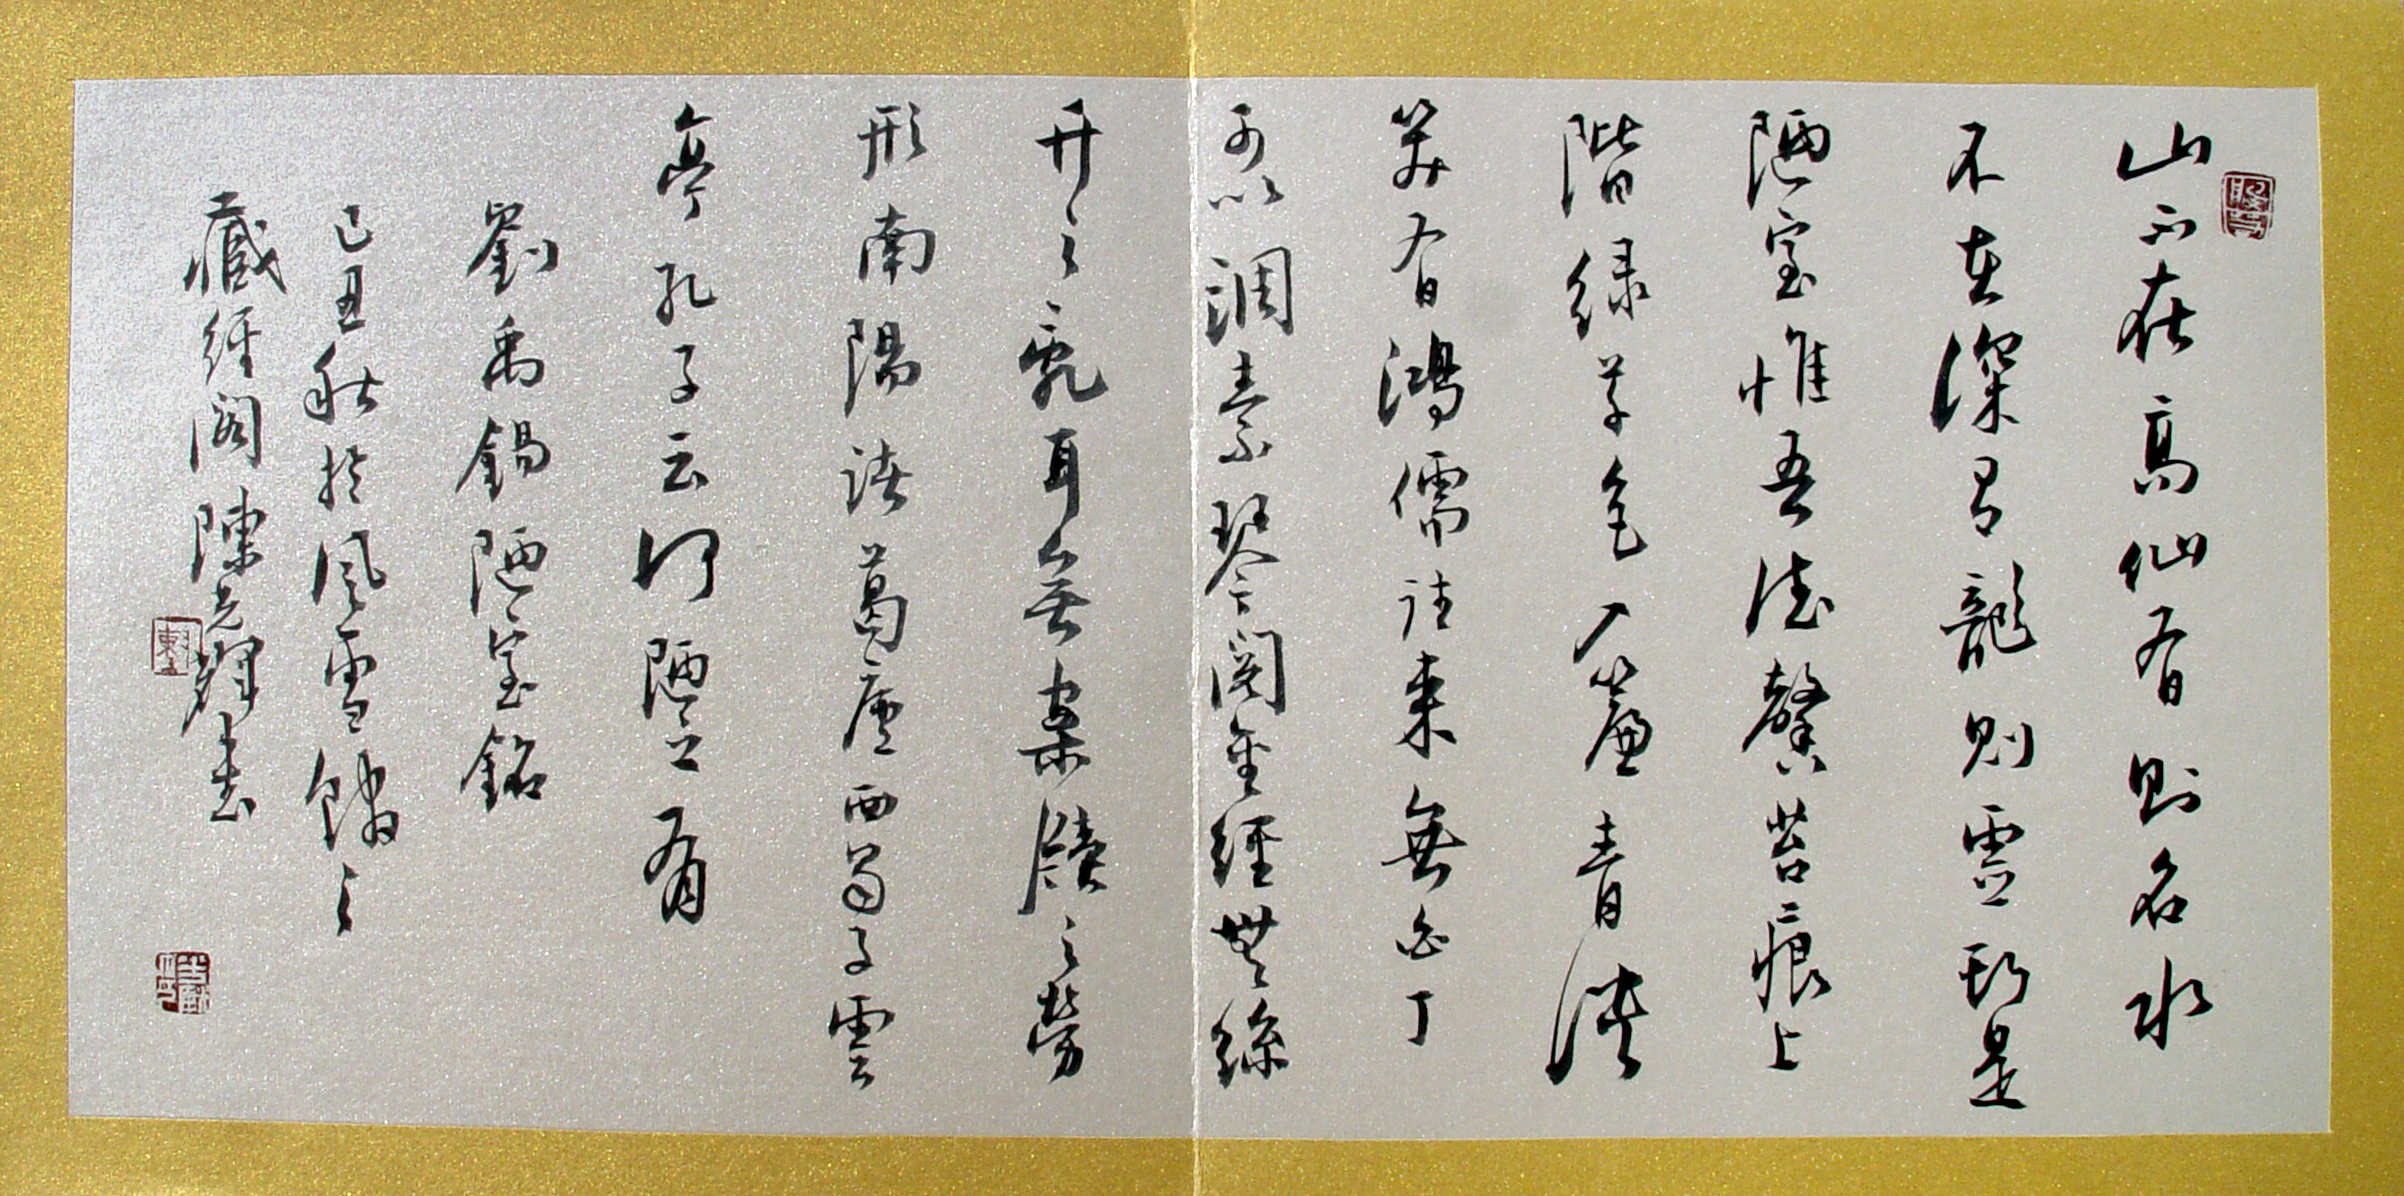 山不在高仙有則名水
不在深有龍則靈斯是
陋室惟吾德馨苔痕上
階緑草色入簾青談
笑有鴻儒往來無白丁
可以調素琴閱金經無絲
竹之亂耳無案牘之勞
形南陽諸葛廬西蜀子雲
亭孔子云何陋之有
劉禹錫陋室銘
己丑秋於風雪之
藏經閣陳光輝書